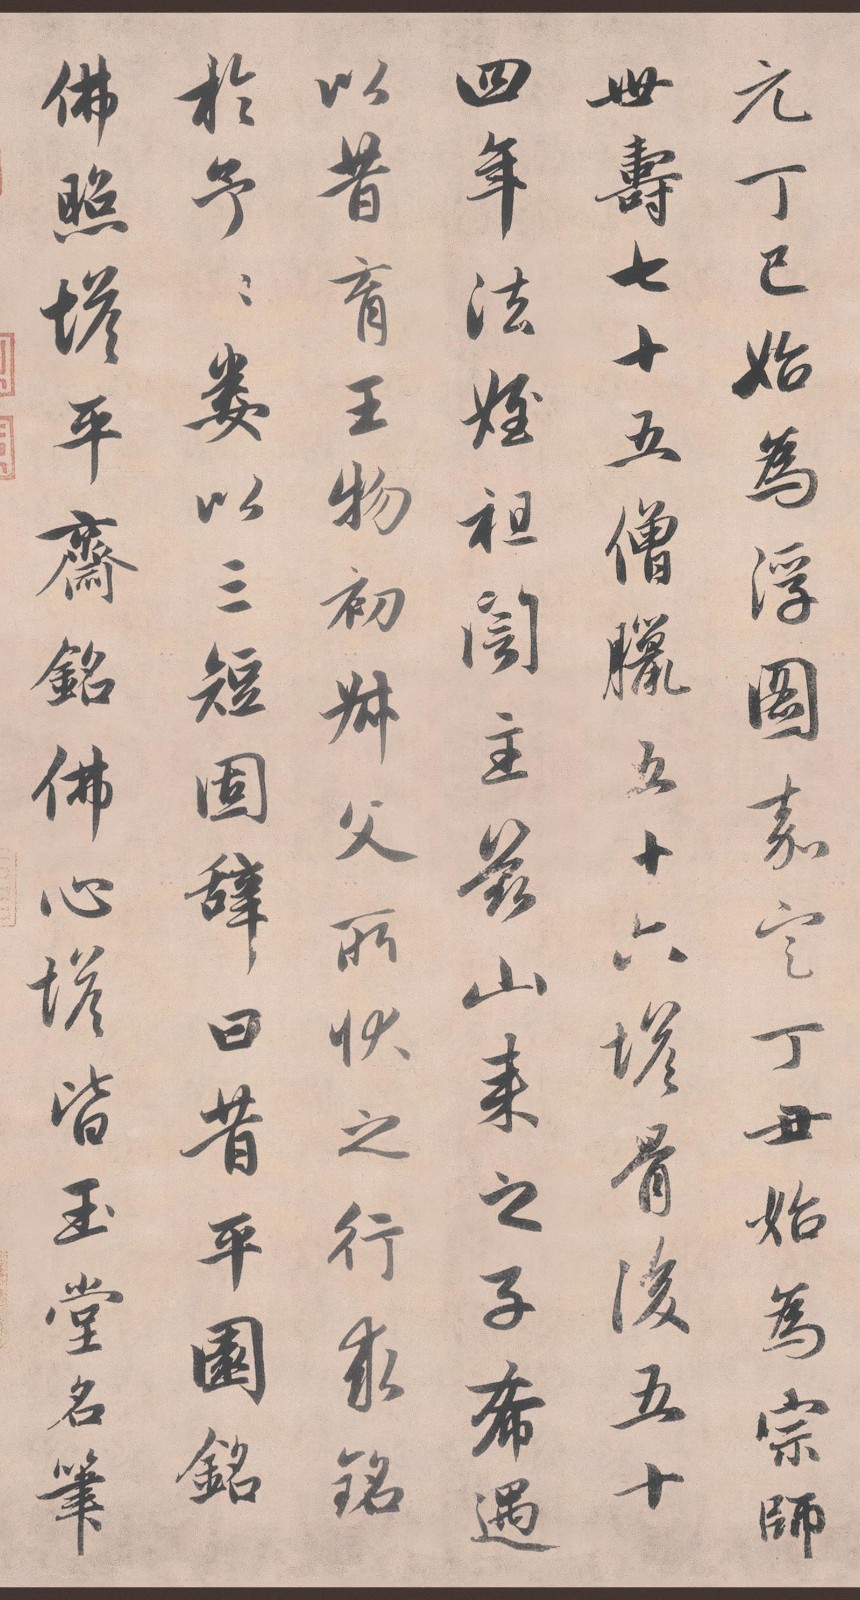 元丁巳始為浮圖嘉定丁丑始為宗師
世壽七十五僧臘五十六塔骨後五十
四年法姪祖訚主茲山來之子希遇
以昔育王物初叔父所狀之行求銘
於予〻婁以三短固辭曰昔平園銘
佛照塔平齋銘佛心塔皆玉堂名筆